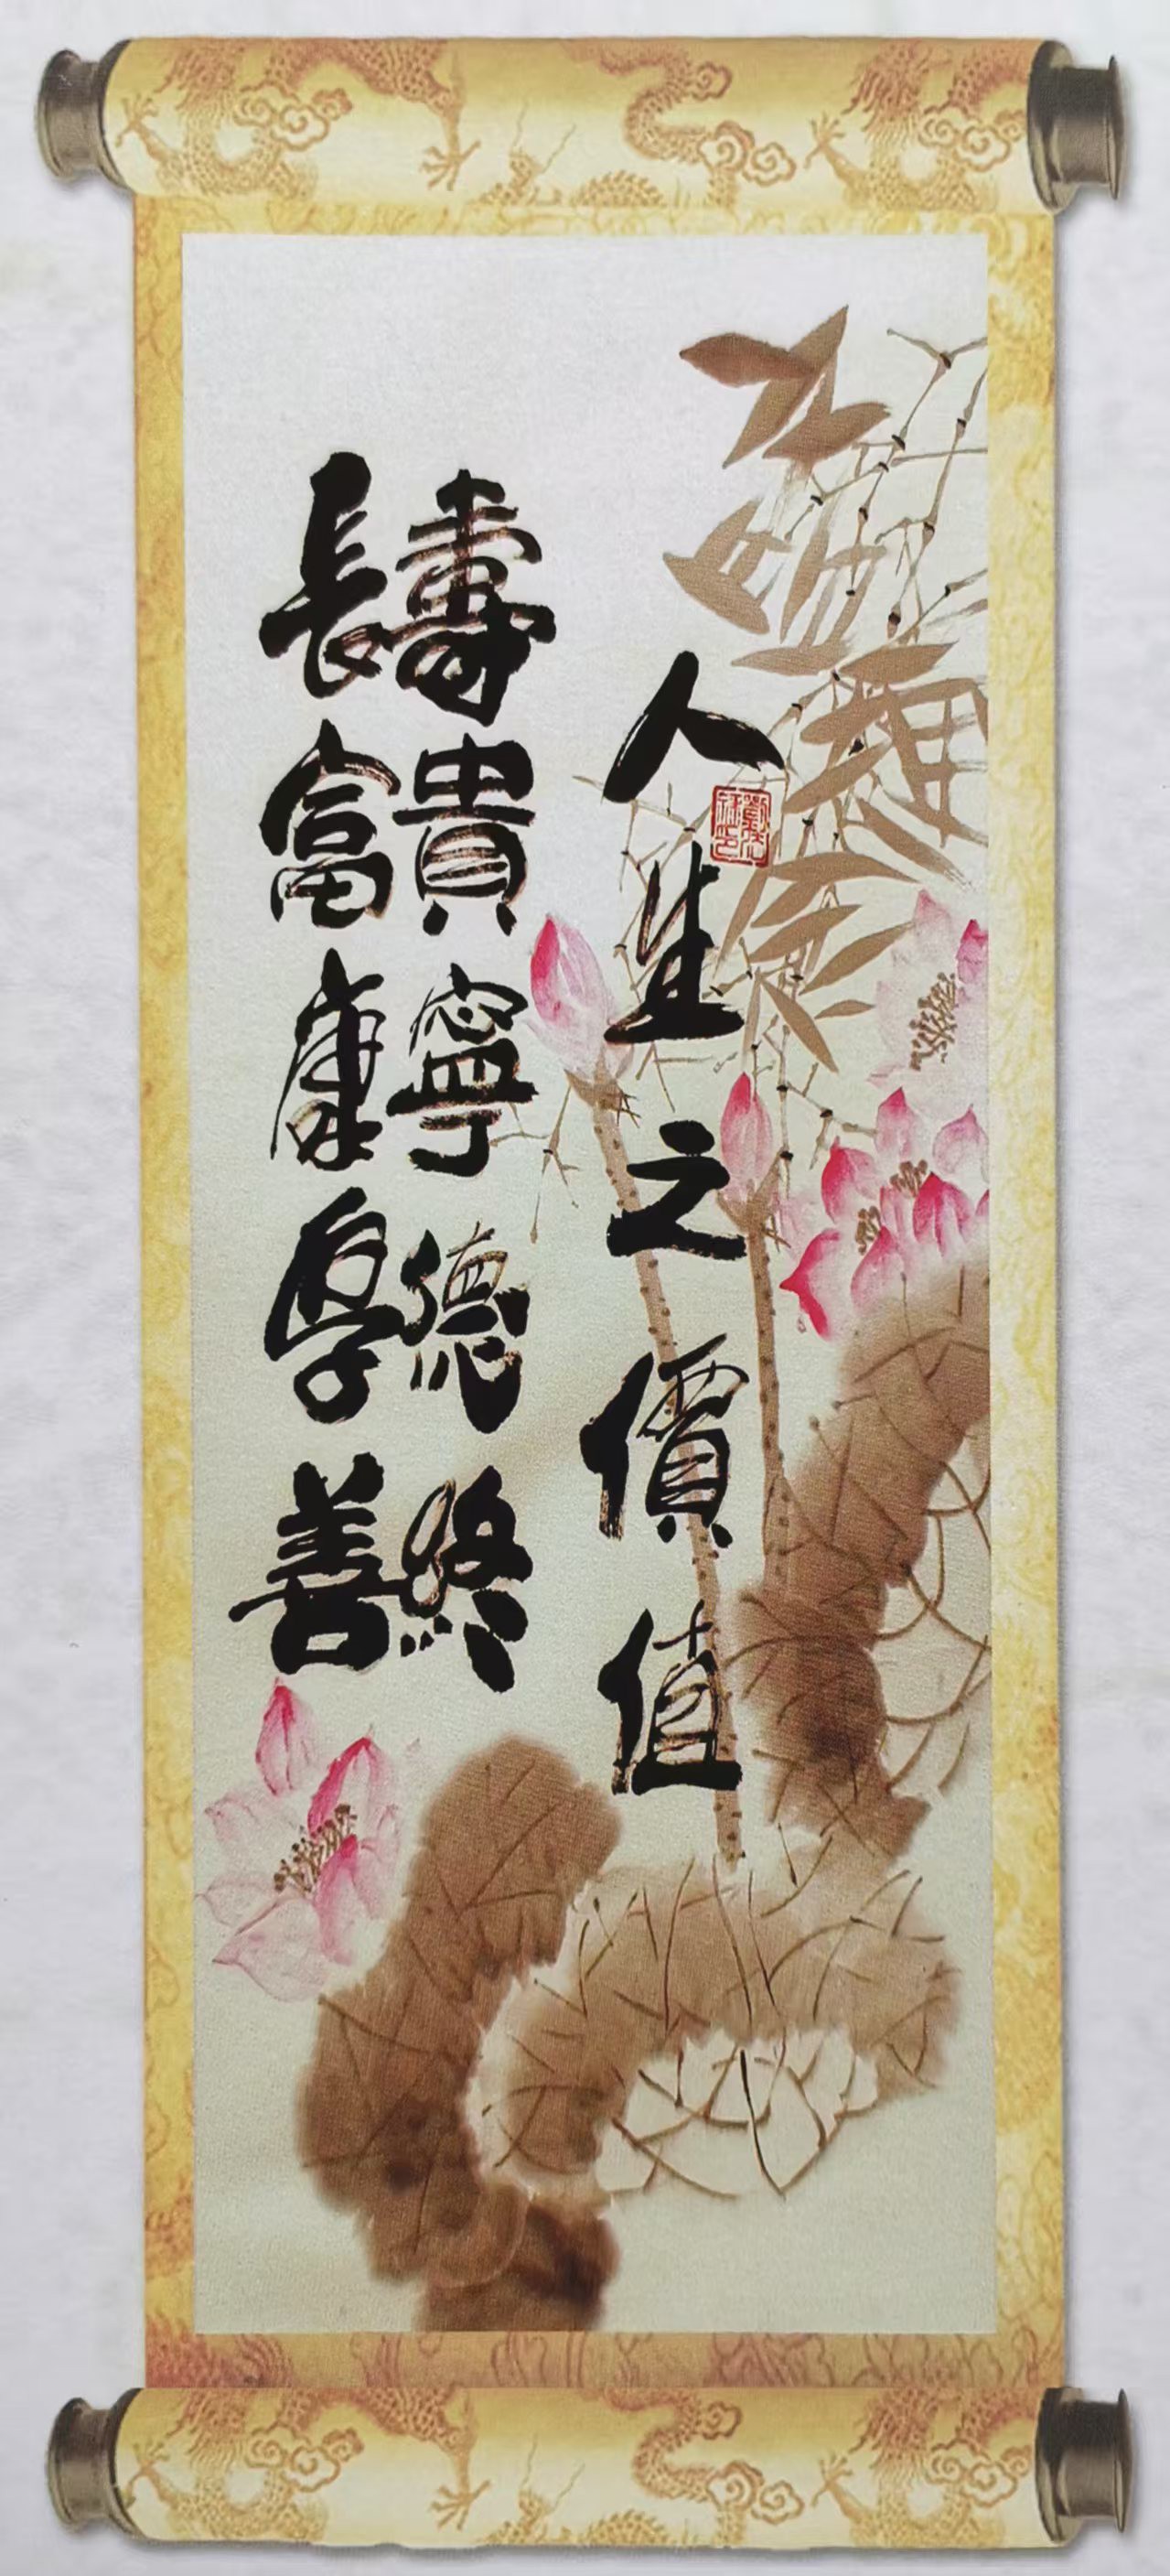 人生之價值
長壽
富貴
康寧
厚德
善終